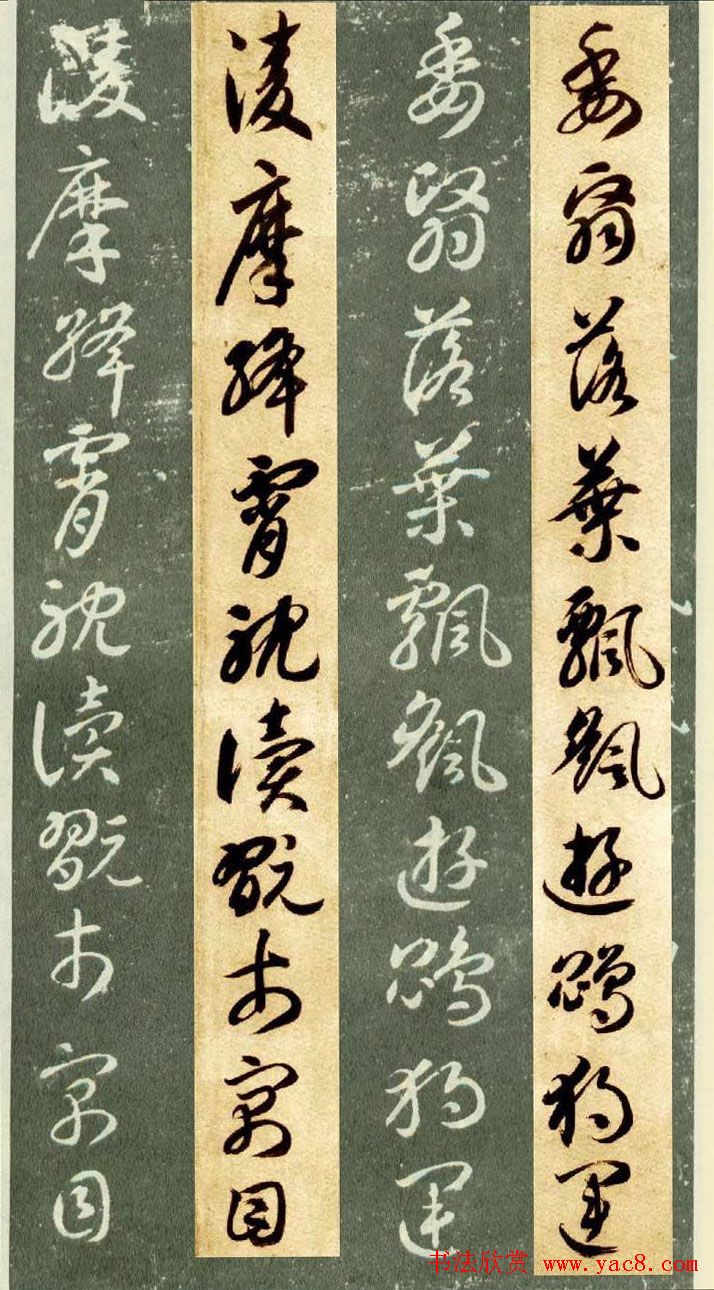 委翳落葉飄飖遊鵾獨運
委翳落葉飄飖遊鵾獨運
凌摩絳霄耽讀翫市寓目
凌摩絳霄耽讀翫市寓目
书法欣赏 www.yac8.com